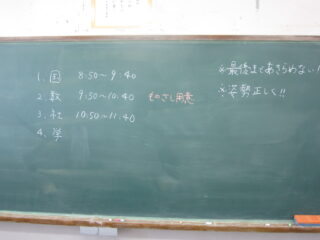 1. 国 8:50～9:40
2. 数 9:50～10:40 ものさし用意
3. 社 10:50～11:40
4. 学
※最後まであきらめない!!
※姿勢正しく!!